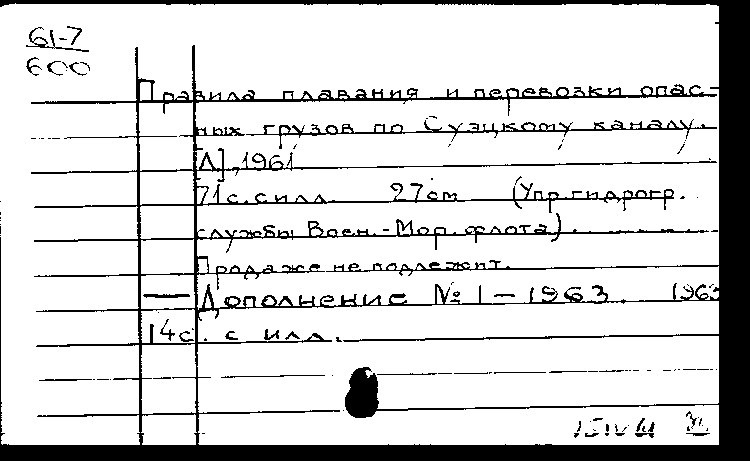 61-7
600
Правила плавания и перевозки опас-
ных грузов по Суэцкому каналу.
[Л], 1961
71 с. с илл. 27 см (Упр. гидрогр.
службы Воен.-Мор. флота).
Продаже не подлежит.
— Дополнение № 1 - 1963. 1963
14 с. с илл.